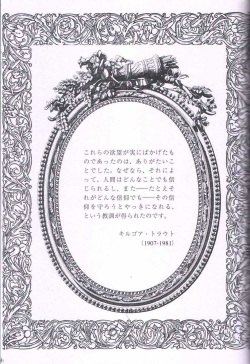 これらの欲望が実にばかげたも
のであったのは、ありがたいこ
とでした。なぜなら、それによ
って、人間はどんなことでも信
じられるし、また——たとえそ
れがどんな信仰でも——その信
仰を守ろうとやっきになれる、
という教訓が得られたのです。
キルゴア・トラウト
(1907-1981)